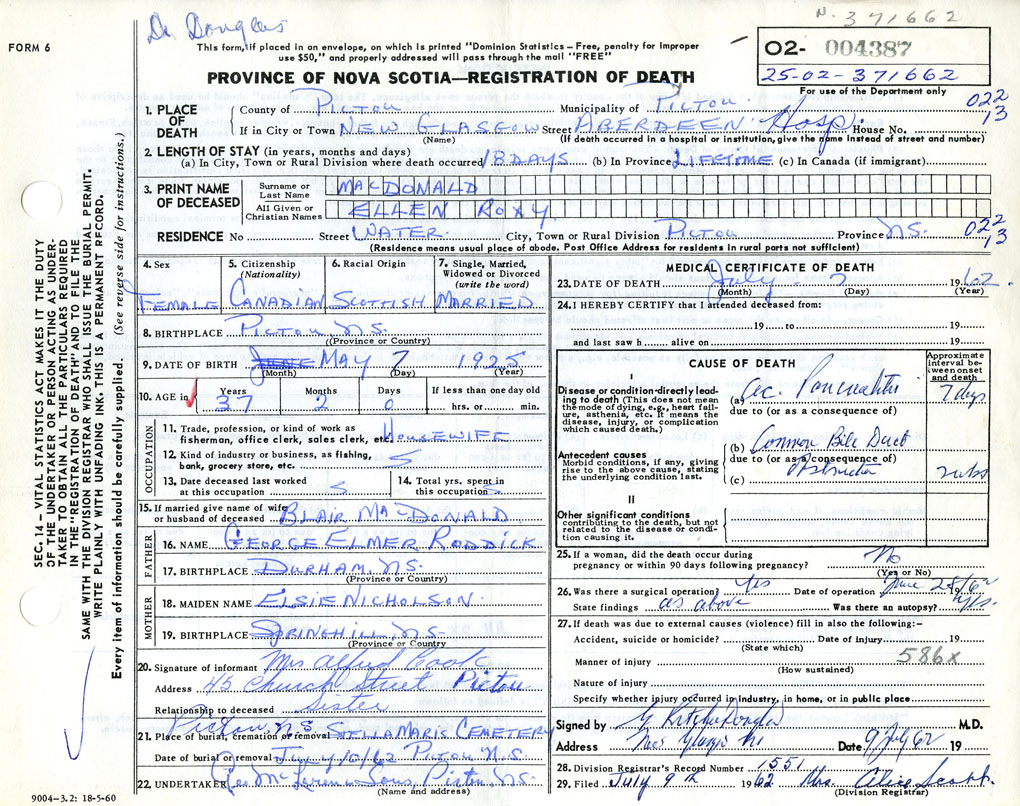 Dr Douglas
N. 371662
FORM 6
This form, if placed in an envelope, on which is printed "Dominion Statistics—Free, penalty for improper
use $50," and properly addressed will pass through the mail "FREE"
02- 004387
25-02-371662
For use of the Department only
PROVINCE OF NOVA SCOTIA—REGISTRATION OF DEATH
1. PLACE OF DEATH
County of PICTOU Municipality of PICTOU
022
13
If in City or Town NEW GLASGOW Street ABERDEEN Hosp. House No.
(Name) (If death occurred in a hospital or institution, give the name instead of street and number)
2. LENGTH OF STAY (in years, months and days)
(a) In City, Town or Rural Division where death occurred 18 DAYS (b) In Province LIFETIME (c) In Canada (if immigrant)
3. PRINT NAME OF DECEASED
Surname or Last Name MACDONALD
All Given or Christian Names ELLEN ROXY
RESIDENCE No Street WATER City, Town or Rural Division PICTOU Province N.S.
022
13
(Residence means usual place of abode. Post Office Address for residents in rural parts not sufficient)
4. Sex 5. Citizenship (Nationality) 6. Racial Origin 7. Single, Married, Widowed or Divorced (write the word)
FEMALE CANADIAN SCOTTISH MARRIED
8. BIRTHPLACE PICTOU N.S.
(Province or Country)
9. DATE OF BIRTH JUNE MAY 7 1925
(Month) (Day) (Year)
10. AGE in Years Months Days If less than one day old
37 2 0 hrs. or min.
OCCUPATION
11. Trade, profession, or kind of work as
fisherman, office clerk, sales clerk, etc. HOUSEWIFE
12. Kind of industry or business, as fishing,
bank, grocery store, etc.
13. Date deceased last worked
at this occupation
14. Total yrs. spent in
this occupation
15. If married give name of wife
or husband of deceased BLAIR MACDONALD
FATHER
16. NAME GEORGE ELMER RODDICK
17. BIRTHPLACE DURHAM, N.S.
(Province or Country)
MOTHER
18. MAIDEN NAME ELSIE NICHOLSON.
19. BIRTHPLACE SPRINGHILL, N.S.
(Province or Country)
20. Signature of informant Mrs Alfred Cook
Address 45 Church Street Pictou
Relationship to deceased Sister
Pictou N.S.
21. Place of burial, cremation or removal STELLA MARIS CEMETERY
Date of burial or removal July 10/62 PICTOU N.S.
22. UNDERTAKER Sons, Pictou N.S.
(Name and address)
9004-3.2: 18-5-60
MEDICAL CERTIFICATE OF DEATH
23. DATE OF DEATH July - 7 1962
(Month) (Day) (Year)
24. I HEREBY CERTIFY that I attended deceased from:
19 to 19
and last saw h alive on 19
CAUSE OF DEATH
Approximate interval between onset and death
I
Disease or condition directly leading to death (This does not mean the mode of dying, e.g., heart failure, asthenia, etc. It means the disease, injury, or complication which caused death.)
(a) Ac. Pancreatitis 7 days
due to (or as a consequence of)
Antecedent causes
Morbid conditions, if any, giving rise to the above cause, stating the underlying condition last.
(b) Common Bile Duct
due to (or as a consequence of)
Obstruction
(c) 2 wks
II
Other significant conditions
contributing to the death, but not related to the disease or condition causing it.
25. If a woman, did the death occur during
pregnancy or within 90 days following pregnancy? No
(Yes or No)
26. Was there a surgical operation? Yes Date of operation June 25/62 19
State findings as above Was there an autopsy? Yes.
27. If death was due to external causes (violence) fill in also the following:-
Accident, suicide or homicide? Date of injury 19
(State which)
586x
Manner of injury
(How sustained)
Nature of injury
Specify whether injury occurred in industry, in home, or in public place
Signed by M.D.
Address New Glasgow NS Date 9 July 62 19
28. Division Registrar's Record Number 1551
29. Filed July 9th 1962 Mrs. Alice Scott.
(Division Registrar)
SEC. 14 – VITAL STATISTICS ACT MAKES IT THE DUTY
OF THE UNDERTAKER OR PERSON ACTING AS UNDER-
TAKER TO OBTAIN ALL THE PARTICULARS REQUIRED
IN THE "REGISTRATION OF DEATH" AND TO FILE THE
SAME WITH THE DIVISION REGISTRAR WHO SHALL ISSUE THE BURIAL PERMIT.
WRITE PLAINLY WITH UNFADING INK. THIS IS A PERMANENT RECORD.
Every item of information should be carefully supplied. (See reverse side for instructions.)